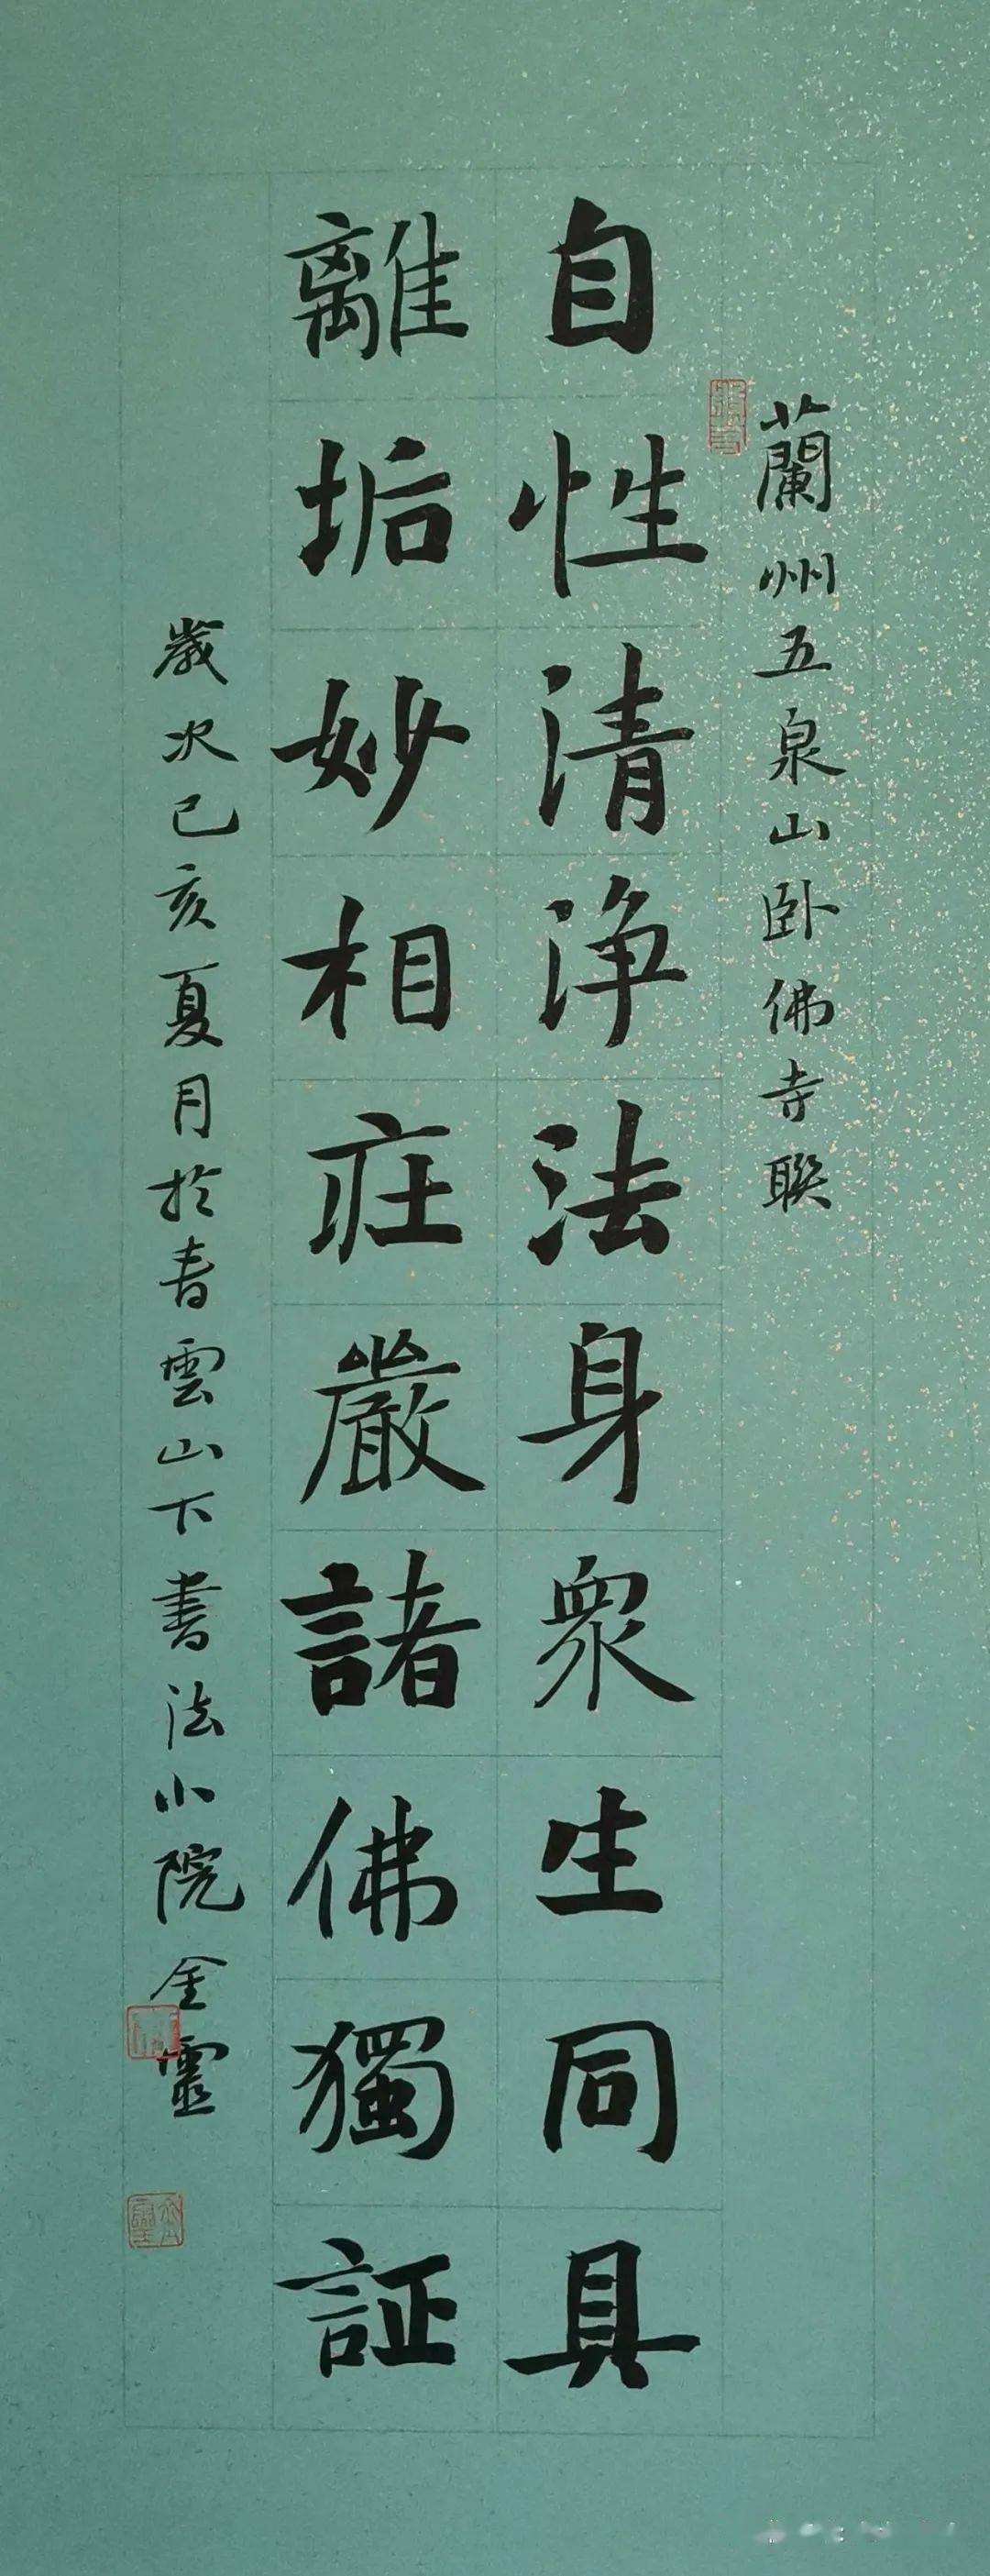 蘭州五泉山卧佛寺聯
自性清浄法身衆生同具
離垢妙相莊嚴諸佛獨証
歲次己亥夏月於青雲山下書法小院金靈